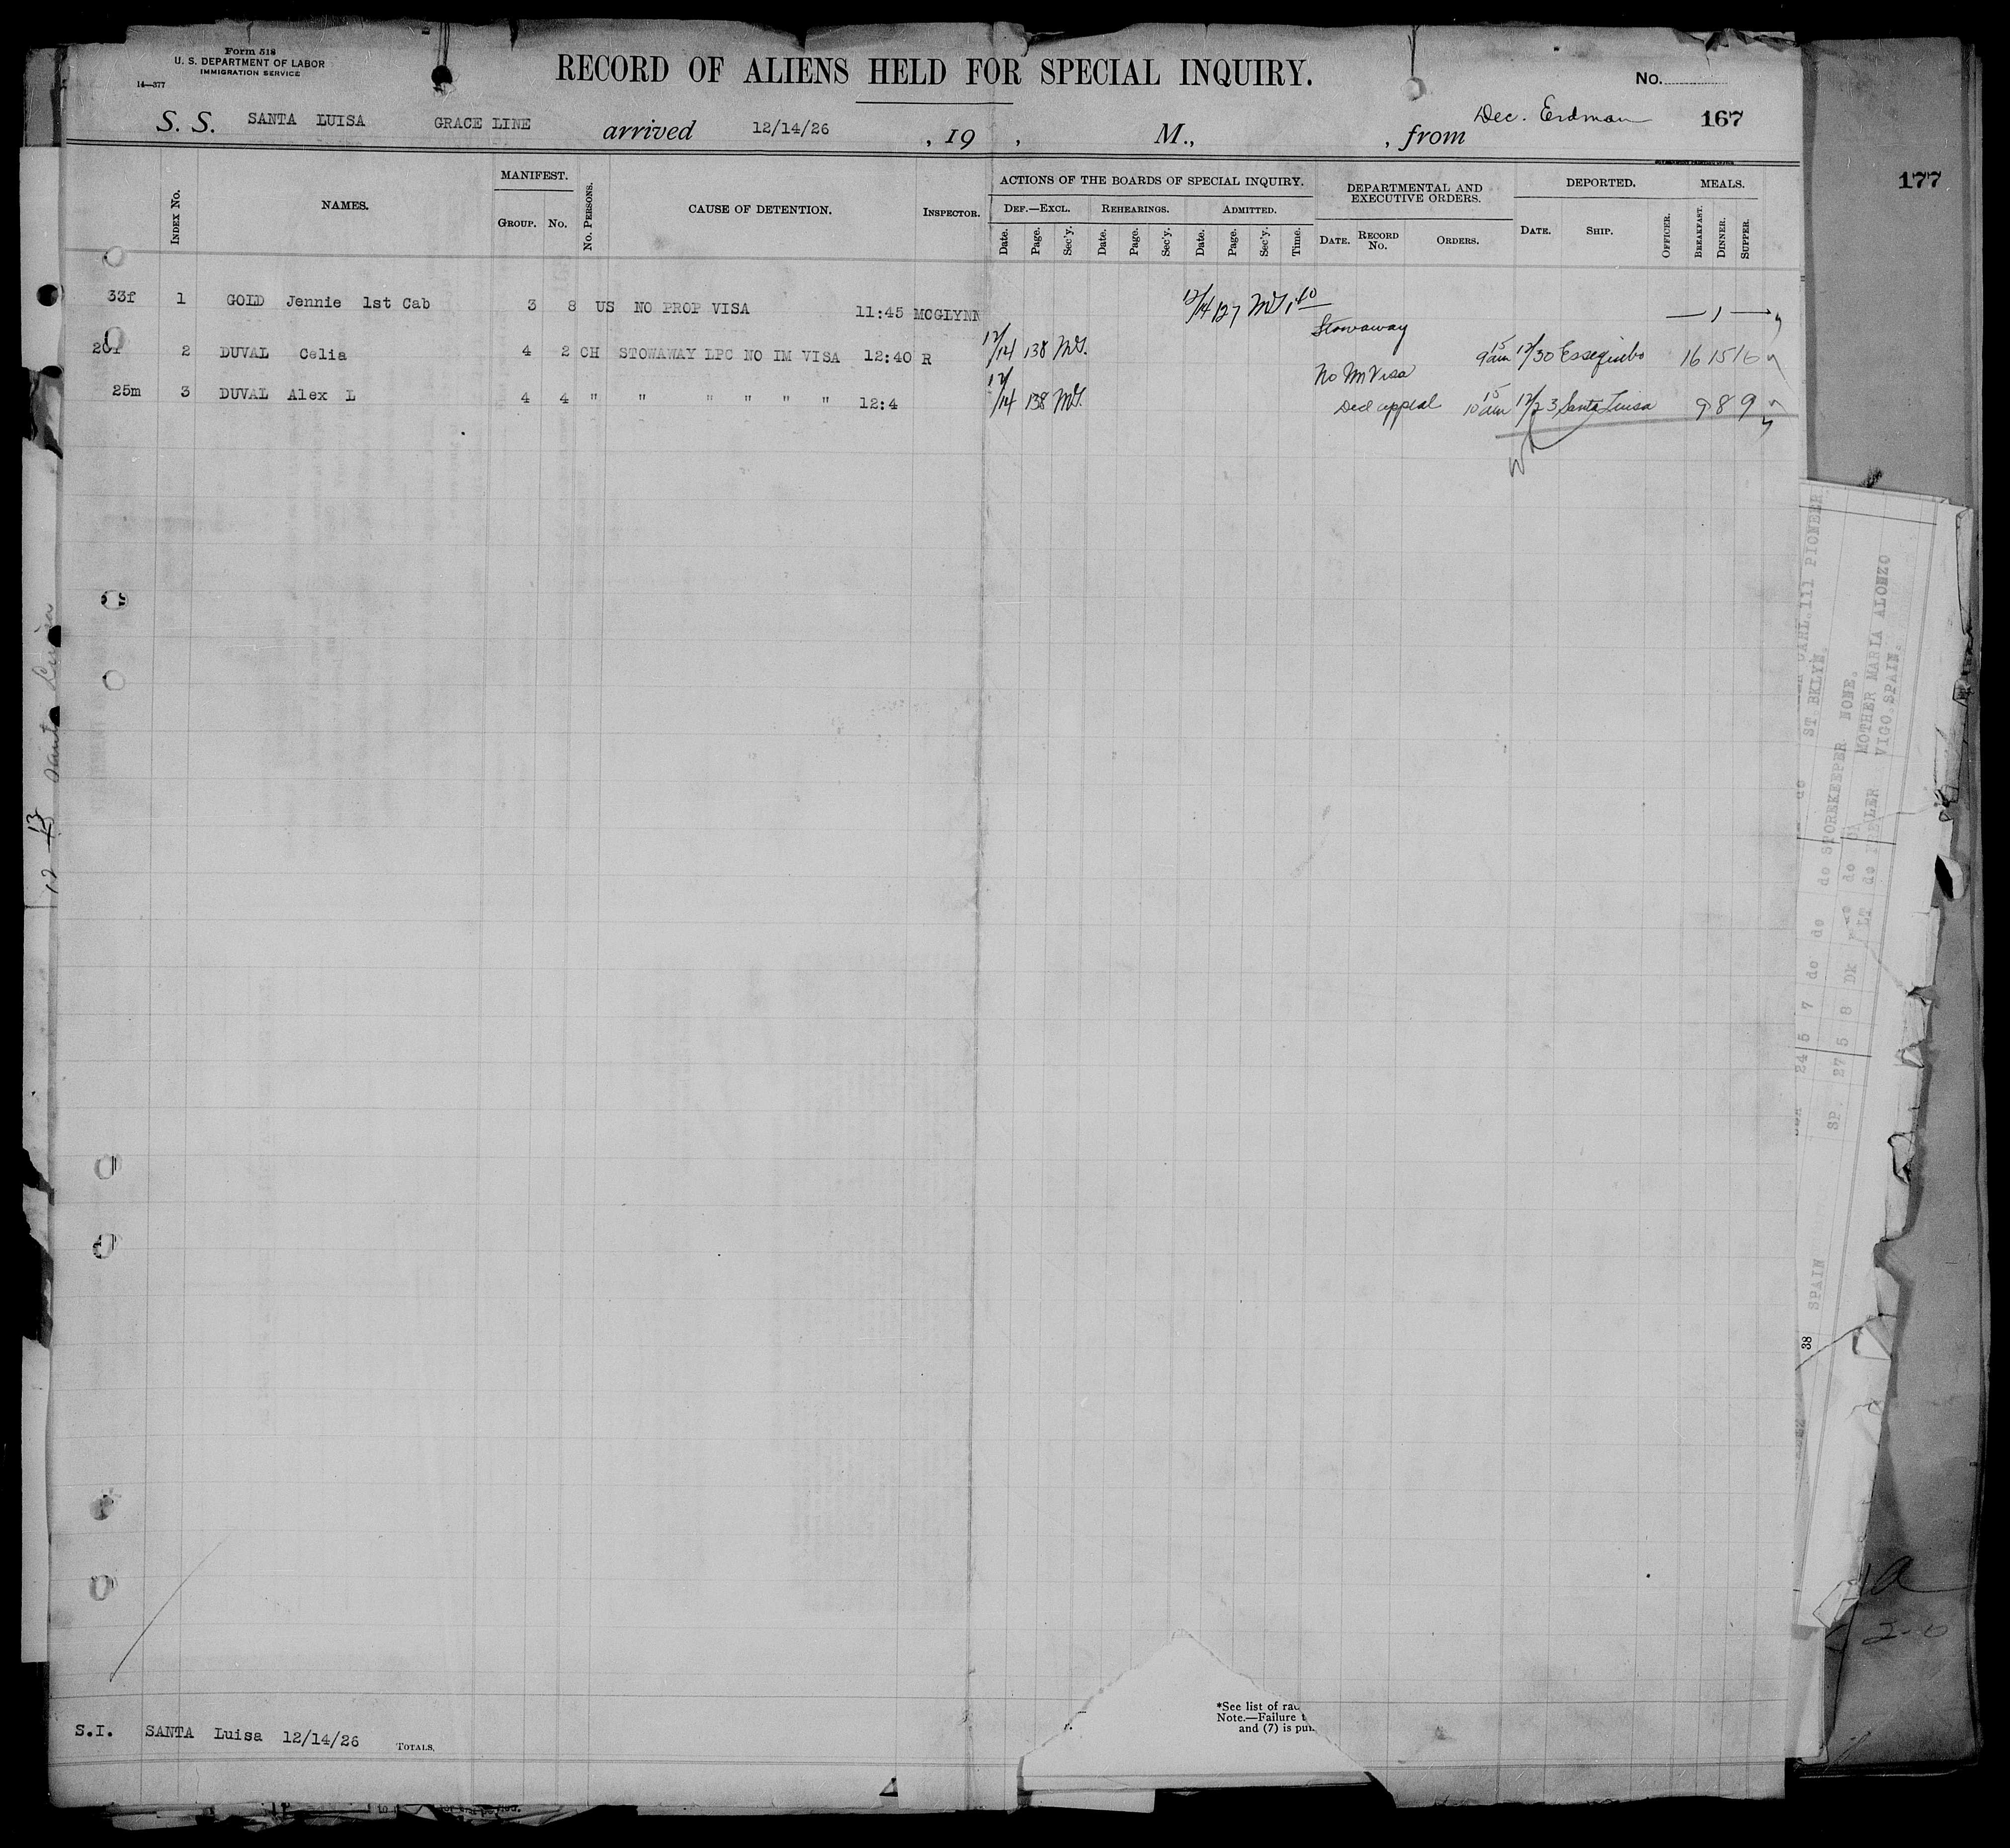 Form 518
U. S. DEPARTMENT OF LABOR
IMMIGRATION SERVICE
14—377
RECORD OF ALIENS HELD FOR SPECIAL INQUIRY.
No.
S. S. SANTA LUISA GRACE LINE arrived 12/14/26 , 19 , M., , from Dec. Erdman 167
177
Index No. NAMES. MANIFEST. Group. No. No. Persons. CAUSE OF DETENTION. Inspector. ACTIONS OF THE BOARDS OF SPECIAL INQUIRY. DEPARTMENTAL AND EXECUTIVE ORDERS. DEPORTED. MEALS.
Def.—Excl. Rehearings. Admitted.
Date. Page. Sec'y. Date. Page. Sec'y. Date. Page. Sec'y. Time. Date. Record No. Orders. Date. Ship. Officer. Breakfast. Dinner. Supper.
33f 1 GOLD Jennie 1st Cab 3 8 US NO PROP VISA 11:45 MCGLYNN 12/14 127 1 40 — 1 —
Stowaway
2 DUVAL Celia 4 2 CH STOWAWAY LPC NO IM VISA 12:40 R 12/14 138 9 15 am 12/30 Essequibo 16 15 16
No Im Visa
25m 3 DUVAL Alex L 4 4 " " " " " " 12:4 12/14 138 Decl appeal 10 15 am 12/23 Santa Luisa 9 8 9
12 13 Santa Luisa
111 PIONEER
ST. BKLYN.
do do STOREKEEPER NONE.
MOTHER MARIA ALONZO
VIGO.SPAIN.
24 5 7 do do
SP. 27 5 8 Dk
38 SPAIN
*See list of
Note.—Failure
and (7) is
S.I. SANTA Luisa 12/14/26 Totals.